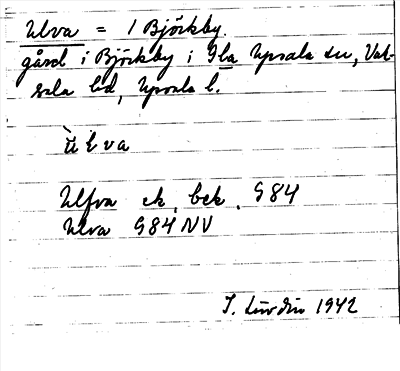 Ulva = 1 Björkby.
gård i Björkby i Gla Upsala sn, Vak-
sala hd, Upsala l.
ùlva
Ulfva ek. bek. G84
Ulva G84 NV
1942